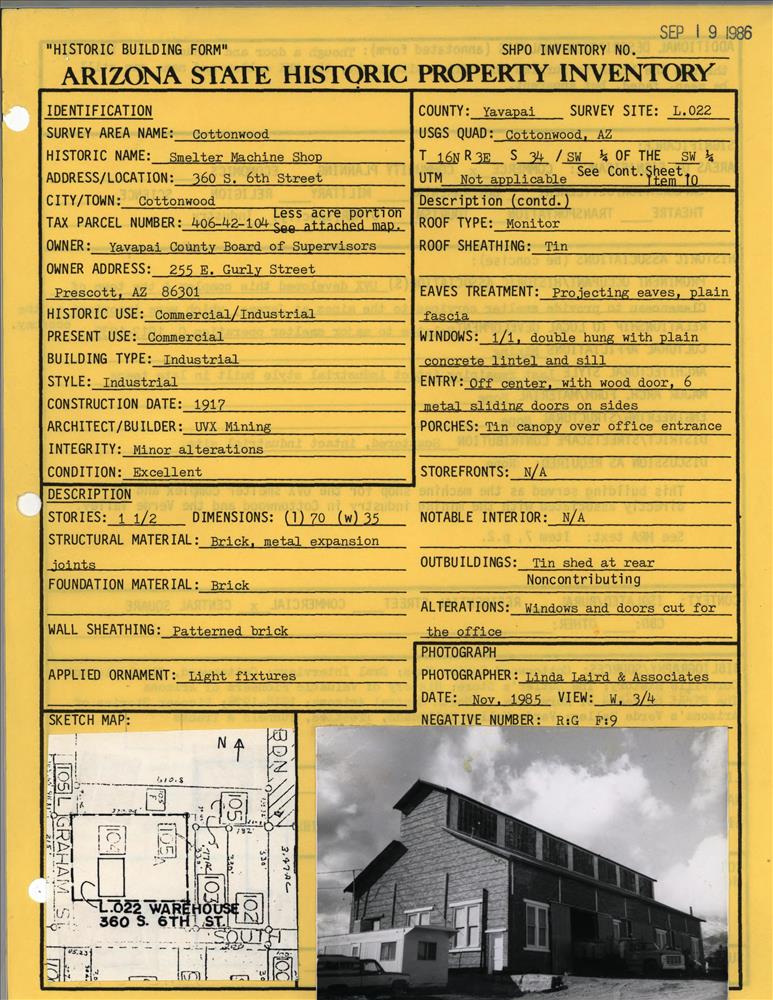 SEP 19 1986
"HISTORIC BUILDING FORM"
SHPO INVENTORY NO.
ARIZONA STATE HISTORIC PROPERTY INVENTORY
IDENTIFICATION
SURVEY AREA NAME: Cottonwood
HISTORIC NAME: Smelter Machine Shop
ADDRESS/LOCATION: 360 S. 6th Street
CITY/TOWN: Cottonwood
TAX PARCEL NUMBER: 406-42-104 Less acre portion
See attached map.
OWNER: Yavapai County Board of Supervisors
OWNER ADDRESS: 255 E. Gurly Street
Prescott, AZ 86301
HISTORIC USE: Commercial/Industrial
PRESENT USE: Commercial
BUILDING TYPE: Industrial
STYLE: Industrial
CONSTRUCTION DATE: 1917
ARCHITECT/BUILDER: UVX Mining
INTEGRITY: Minor alterations
CONDITION: Excellent
DESCRIPTION
STORIES: 1 1/2 DIMENSIONS: (l) 70 (w) 35
STRUCTURAL MATERIAL: Brick, metal expansion
joints
FOUNDATION MATERIAL: Brick
WALL SHEATHING: Patterned brick
APPLIED ORNAMENT: Light fixtures
COUNTY: Yavapai SURVEY SITE: L.022
USGS QUAD: Cottonwood, AZ
T 16N R 3E S 34 / SW ¼ OF THE SW ¼
UTM Not applicable See Cont.Sheet,
Item 10
Description (contd.)
ROOF TYPE: Monitor
ROOF SHEATHING: Tin
EAVES TREATMENT: Projecting eaves, plain
fascia
WINDOWS: 1/1, double hung with plain
concrete lintel and sill
ENTRY: Off center, with wood door, 6
metal sliding doors on sides
PORCHES: Tin canopy over office entrance
STOREFRONTS: N/A
NOTABLE INTERIOR: N/A
OUTBUILDINGS: Tin shed at rear
Noncontributing
ALTERATIONS: Windows and doors cut for
the office
PHOTOGRAPH
PHOTOGRAPHER: Linda Laird & Associates
DATE: Nov, 1985 VIEW: W, 3/4
NEGATIVE NUMBER: R:G F:9
SKETCH MAP:
N
BDN
105L
105
104
105A
103
102
100
GRAHAM ST
L.022 WAREHOUSE
360 S. 6TH ST.
SOUTH